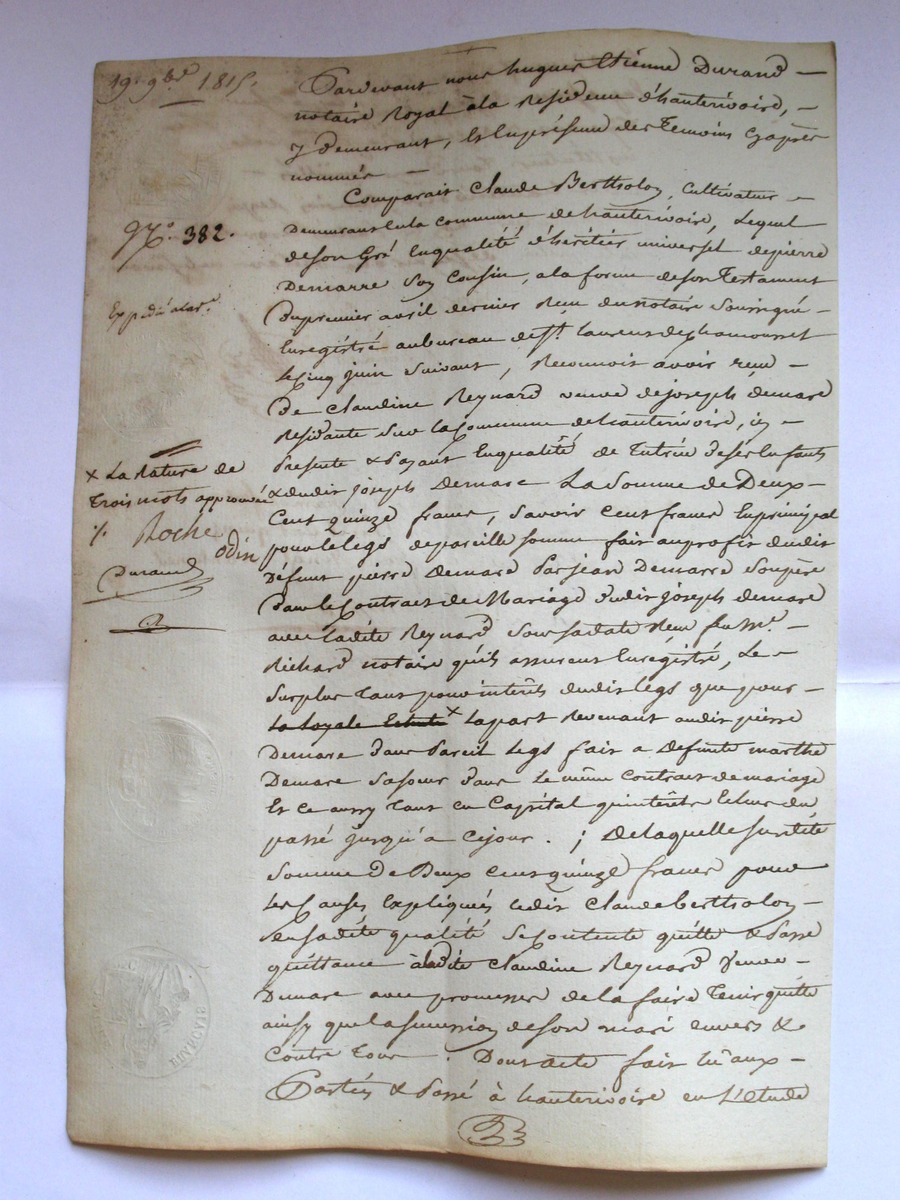 19e 9bre 1815.
No. 382.
Expédié a la r.e
x La Rature de
Trois mots approuvée
./. Roche
odin
Durand
Pardevant nous hugues Etiénne Durand —
notaire Royal à la Residence d'hauterivoire, —
y Demeurant, Et En présence des Temoins Cyaprès
nommés —
Comparait Claude Bertholon, Cultivateur —
Demeurant En la Commune de hauterivoire, Lequel
de son Gré En qualité d'héritier universel de pierre
Demarre Son Cousin, a la forme de son Testament
du premier avril dernier Reçu du notaire Soussigné —
Enregistré au bureau de St. Laurent de chamousset
le Cinq juin Suivant, Reconnoit avoir reçu —
De Claudine Reynard veuve de joseph demare
Residante Sur la Commune de hauterivoire, icy —
Presente & Payant En qualité de Tutrice de ses Enfants
& dudit joseph Demare La Somme de Deux —
Cent quinze francs, Savoir Cent francs En principal
pour le legs de pareille Somme fait au profit dudit
Défunt pierre Demare Par jean Demarre Son père
Dans le Contract de Mariage dudit joseph demare
avec ladite Reynard Sous sa date Reçu feu Me. —
Richard notaire qu'ils assurent Enregistré, Le —
Surplus Tant pour intérêts dudit legs que pour —
x la part Revenant audit pierre
Demare dans Pareil Legs fait a Défunte marthe
Demare Sa Soeur dans le même Contrat de mariage
Et ce aussy Tant en Capital qu'intérêts Echus du
passé jusqu'a ce jour. ; De laquelle Susdite
Somme De Deux cent quinze francs pour
les Causes Expliqués ledit Claude bertholon —
En sadite qualité Se Contente quitte & Passe
quittance à ladite Claudine Reynard Veuve —
Demare avec promesse de la faire Tenir quitte
ainsy que la Succession de son mari envers &
Contre Tous. Dont acte fait lu aux —
Parties & Passé à hauterivoire en L'étude